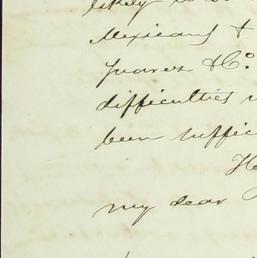 likely to
Mexicans &
Juarez & Co.
difficulties
been suffic
He
my dear